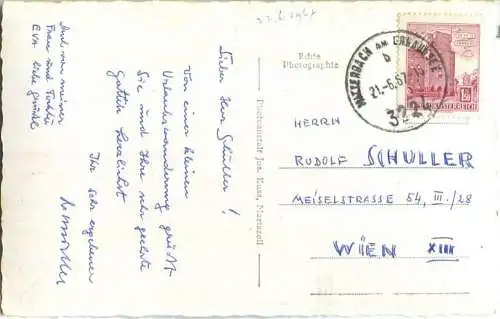 22.6.1967
Lieber Herr Schuller!
Von einer kleinen
Urlaubswanderung grüßt
Sie und Ihre sehr geehrte
Gattin herzlichst
Ihr sehr ergebener
Auch von meiner
Frau und Tochter
liebe Grüße
Echte
Photographie
Photoanstalt Jos. Kuss, Mariazell
MITTERBACH AM ERLAUFSEE
b
21.-6.67-16
3224
HERRN
RUDOLF SCHULLER
MEISELSTRASSE 54, III./28
WIEN XIII